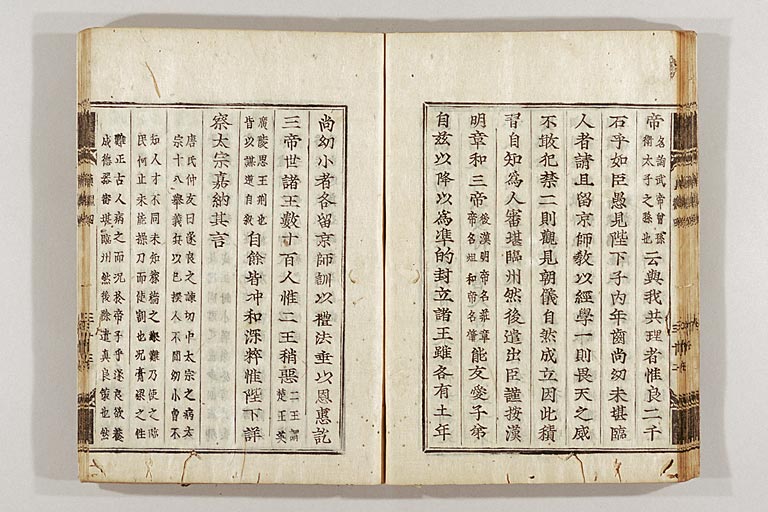 帝名詢武帝曾孫衛太子之孫也云與我共理者惟良二千
石乎如臣愚見陛下子內年齒尚幼未堪臨
人者請且留京師教以經學一則畏天之威
不敢犯禁二則觀見朝儀自然成立因此積
習自知為人審堪臨州然後遣出臣謹按漢
明章和三帝後漢明帝名莊章帝名炟和帝名肇能友愛子弟
自茲以降以為準的封立諸王雖各有土年
尚幼小者各留京師訓以禮法垂以恩惠訖
三帝世諸王數十百人惟二王稍惡二王謂楚王英
廣陵思王荊也皆以謀逆自殺自餘皆沖和深粹惟陛下詳
察太宗嘉納其言
唐氏仲友曰遂良之諫切中太宗之病太
宗十八舉義兵以己撰人不閒幼小曾不
知人才不同未知稼穡之艱難乃使之臨
民何止未能操刀而使割也況膏粱之性
難正古人病之而況於帝子乎遂良欲養
成德器審堪臨州然後除遣真良策也然